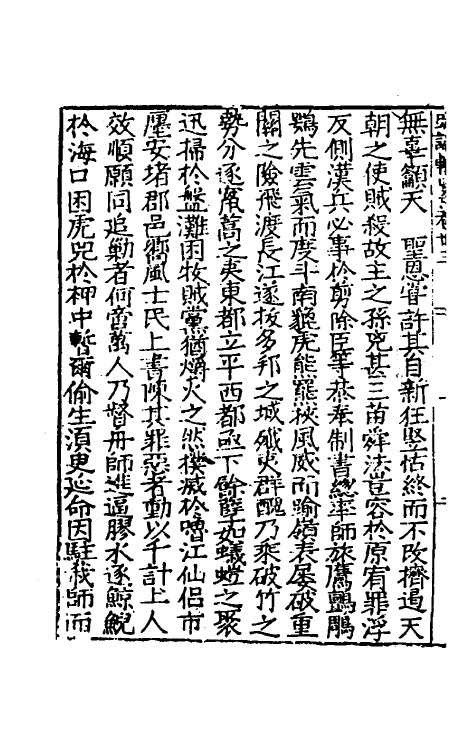 無辜籲天　聖恩眷許其自新狂豎怙終而不改擠遏天
朝之使賊殺故主之孫兇甚三苗舜法豈容於原宥罪浮
反側漢兵必事於剪除臣等恭奉制書總率師旅鷹鸇鵰
鶚先雲氣而度斗南貔虎熊羆挾風威而踰嶺表屢破重
關之險飛渡長江遂拔多邦之城殲夷群醜乃乘破竹之
勢分逐竄蒿之夷東都立平西都亟下餘孽如蟻螘之聚
迅掃於盤灘困牧賊黨猶爝火之然撲滅於嚕江仙侶市
廛安堵郡邑嚮風士民上書陳其罪惡者動以千計上人
效順願同追勦者何啻萬人乃督舟師進逼膠水逐鯨鯢
於海口困虎兕於柙中暫爾偷生湏臾延命因駐我師而